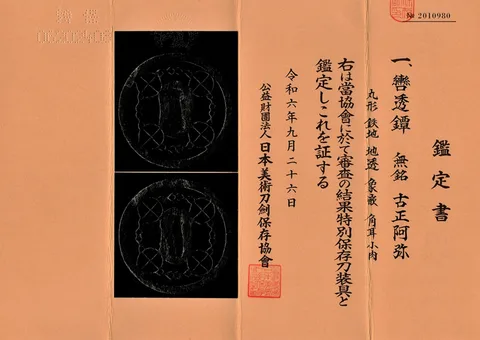 № 2010980
鑑定書
一、轡透鐔 無銘 古正阿弥
丸形 鉄地 地透 象嵌 角耳小肉
右は當協會に於て審査の結果特別保存刀装具と
鑑定しこれを証する
令和六年九月二十六日
公益財團法人 日本美術刀劍保存協會